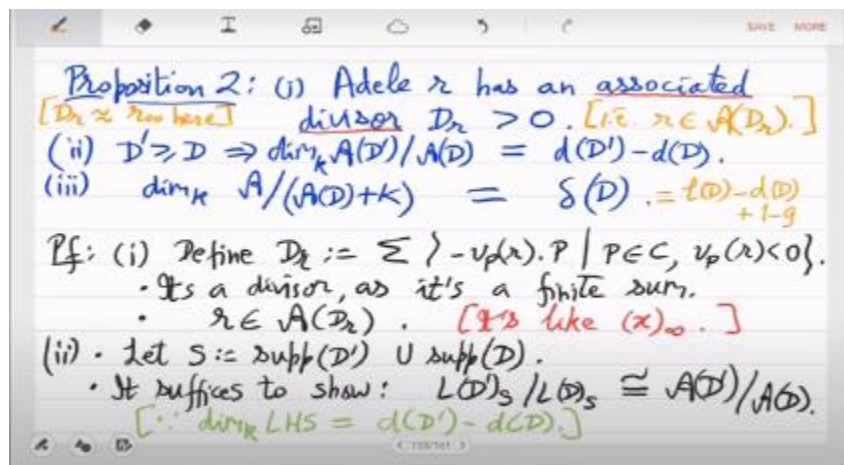 SAVE MORE
Proposition 2: (i) Adele r has an associated
[Dr ≈ r∞ here] divisor Dr > 0. [i.e. r ∈ A(Dr).]
(ii) D' ≥ D ⇒ dimk A(D')/A(D) = d(D') - d(D).
(iii) dimk A/(A(D)+K) = δ(D). = l(D) - d(D)
+ 1 - g
Pf: (i) Define Dr := Σ {-vp(r).P | P∈C, vp(r)<0}.
• Its a divisor, as it's a finite sum.
• r ∈ A(Dr). [It's like (x)∞.]
(ii) • Let S := supp(D') ∪ supp(D).
• It suffices to show: L(D')s/L(D)s ≅ A(D')/A(D).
[∵ dimk LHS = d(D') - d(D).]